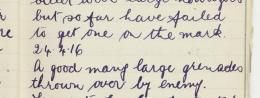 but so far have failed
to get one on the mark.
24.4.16
A good many large grenades
thrown over by enemy.